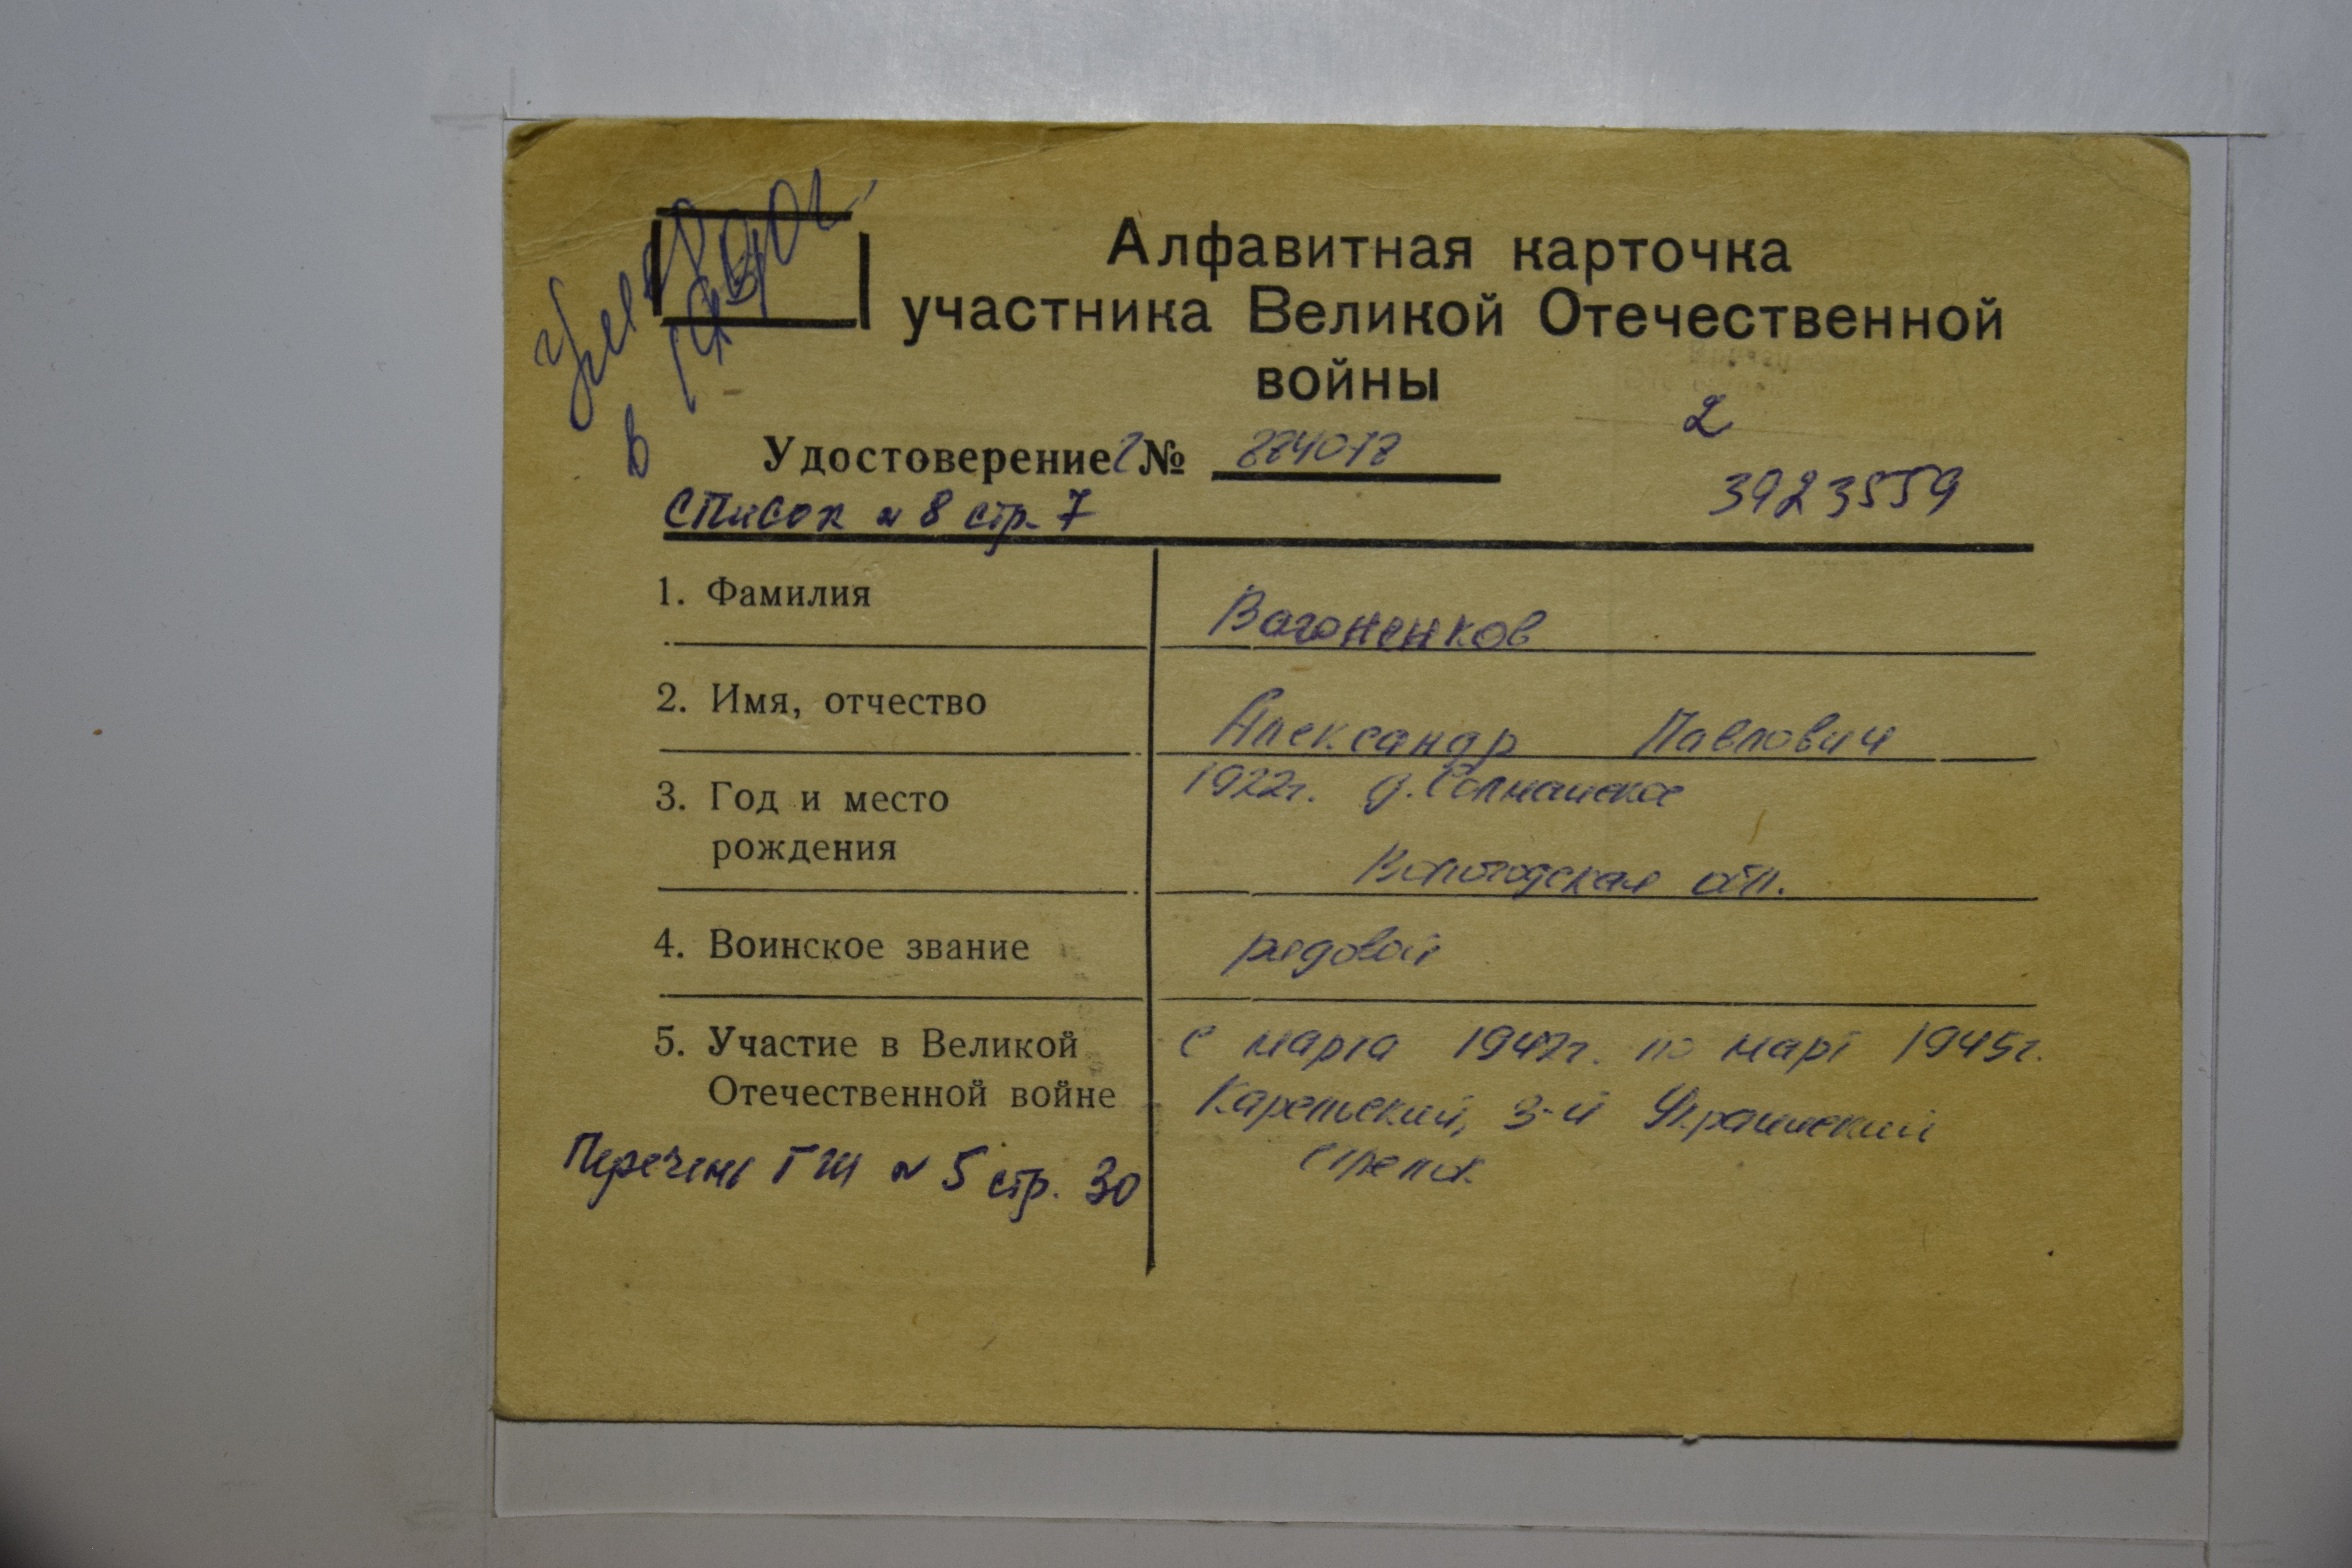 Алфавитная карточка
участника Великой Отечественной
войны
2
Удостоверение Г №
3923559
список № 8 стр. 7
1. Фамилия
Вагоненков
2. Имя, отчество
Александр Павлович
3. Год и место
рождения
1922г. д.
Вологодская обл.
4. Воинское звание
рядовой
5. Участие в Великой
Отечественной войне
с марта 1942г. по март 1945г.
Карельский, 3-й Украинский
стрелок
Перечень ГШ № 5 стр. 30